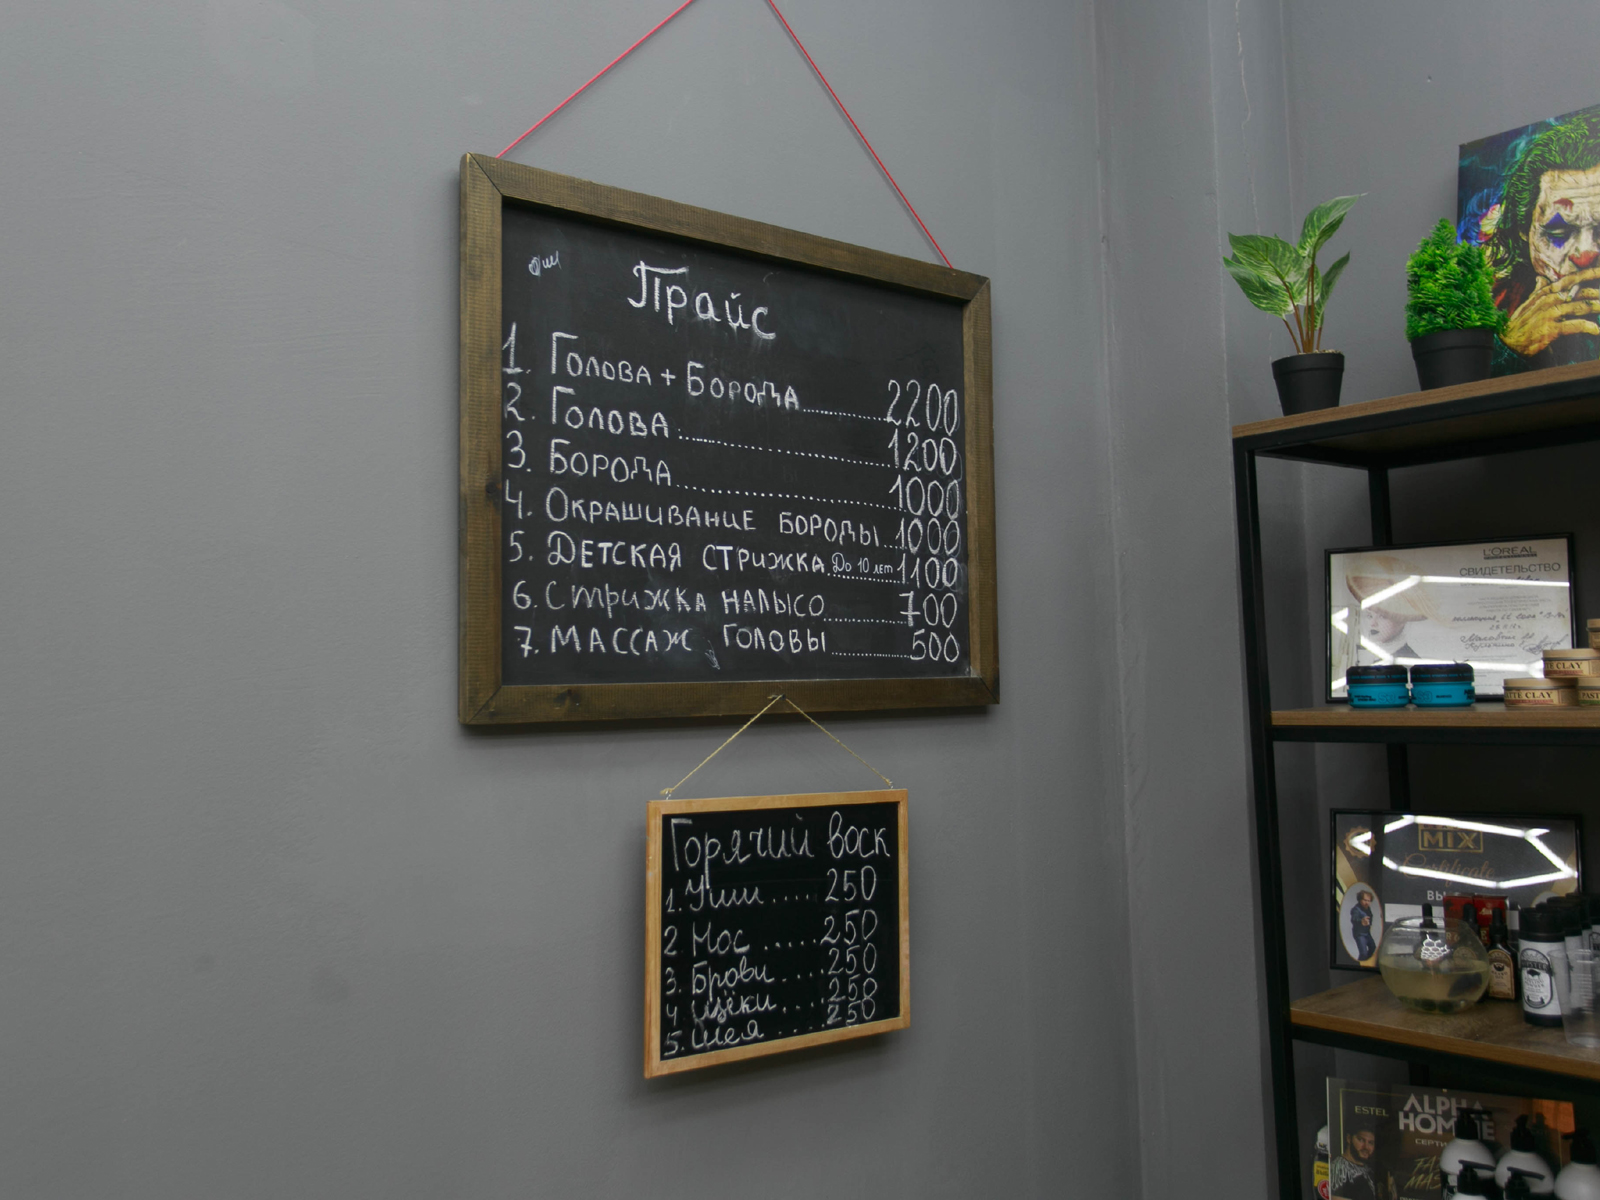 Прайс
1. Голова + Борода 2200
2. Голова 1200
3. Борода 1000
4. Окрашивание бороды 1000
5. Детская стрижка До 10 лет 1100
6. Стрижка налысо 700
7. Массаж головы 500
Горячий воск
1. Уши .... 250
2 Нос ..... 250
3. Брови .... 250
4 Щёки ... 250
5. Шея .... 250
L'ORÉAL
СВИДЕТЕЛЬСТВО
CLAY
CLAY
MIX
ESTEL
ALPHA
HOMME